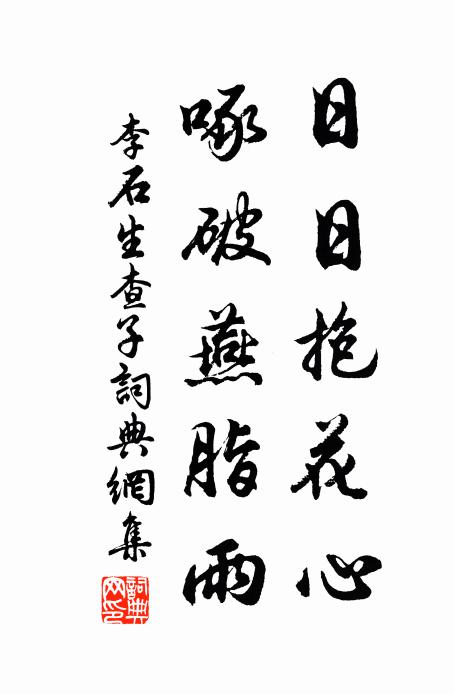 日日抱花心
啄破燕脂雨
李石生查子詞典網集
詞典网印